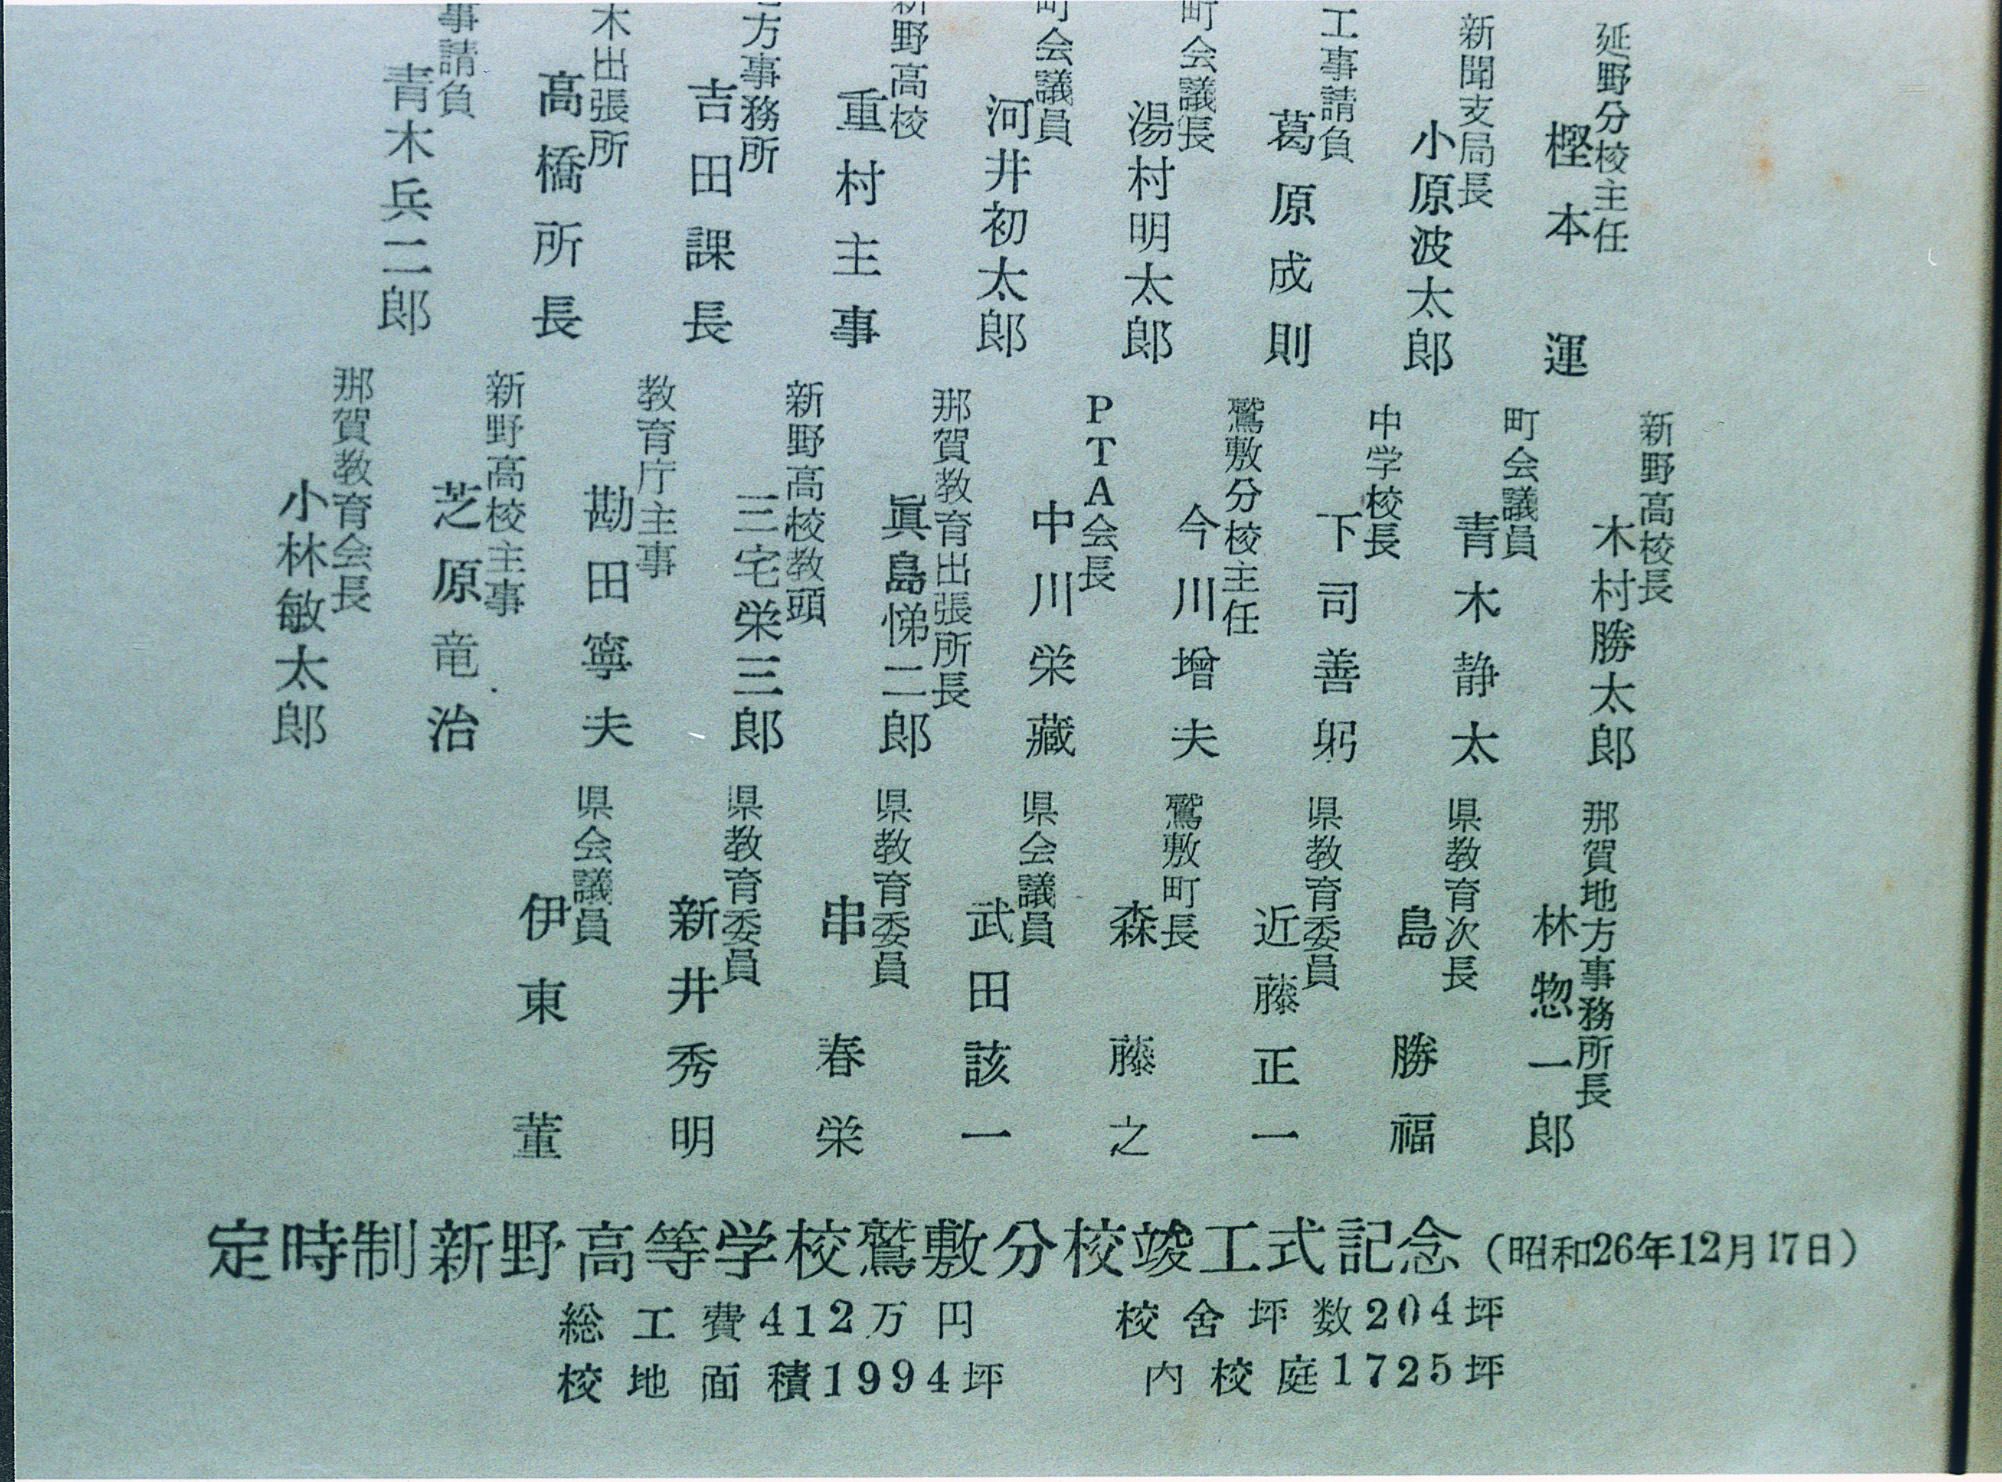 延野分校主任
樫本運
新聞支局長
小原波太郎
工事請負
葛原成則
町会議長
湯村明太郎
町会議員
河井初太郎
新野高校
重村主事
方事務所
吉田課長
木出張所
高橋所長
事請負
青木兵二郎
新野高校長
木村勝太郎
町会議員
青木静太
中学校長
下司善躬
鷲敷分校主任
今川増夫
PTA会長
中川栄藏
那賀教育出張所長
眞島悌二郎
新野高校教頭
三宅栄三郎
教育庁主事
勘田寧夫
新野高校主事
芝原竜治
那賀教育会長
小林敏太郎
那賀地方事務所長
林惣一郎
県教育次長
島勝福
県教育委員
近藤正一
鷲敷町長
森藤之
県会議員
武田該一
県教育委員
串春栄
県教育委員
新井秀明
県会議員
伊東董
定時制新野高等学校鷲敷分校竣工式記念(昭和26年12月17日)
総工費412万円 校舎坪数204坪
校地面積1994坪 内校庭1725坪